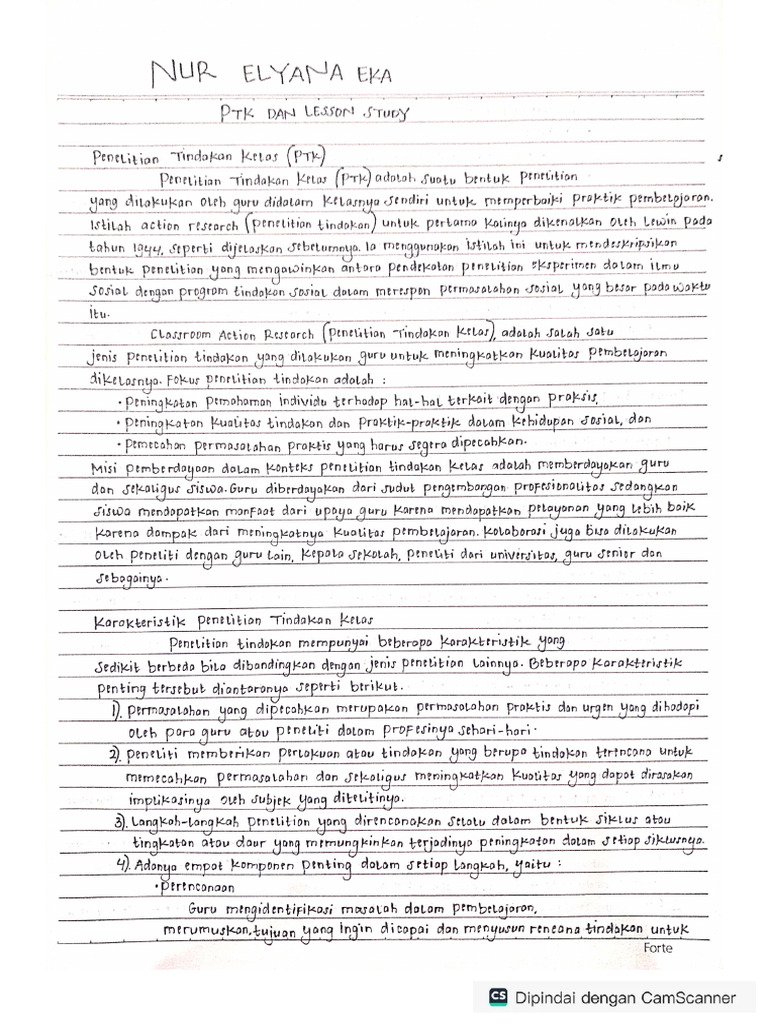 NUR ELYANA EKA
PTK DAN LESSON STUDY
Penelitian Tindakan Kelas (PTK)
Penelitian Tindakan Kelas (PTK) adalah suatu bentuk penelitian
yang dilakukan oleh guru didalam kelasnya sendiri untuk memperbaiki praktik pembelajaran.
Istilah action research (penelitian tindakan) untuk pertama kalinya dikenalkan oleh Lewin pada
tahun 1944, seperti dijelaskan sebelumnya. Ia menggunakan istilah ini untuk mendeskripsikan
bentuk penelitian yang mengawinkan antara pendekatan penelitian eksperimen dalam ilmu
sosial dengan program tindakan sosial dalam merespon permasalahan sosial yang besar pada waktu
itu.
Classroom Action Research (penelitian Tindakan Kelas), adalah salah satu
jenis penelitian tindakan yang dilakukan guru untuk meningkatkan kualitas pembelajaran
dikelasnya. Fokus penelitian tindakan adalah :
• Peningkatan pemahaman individu terhadap hal-hal terkait dengan praksis,
• Peningkatan kualitas tindakan dan praktik-praktik dalam kehidupan sosial, dan
• Pemecahan permasalahan praktis yang harus segera dipecahkan.
Misi pemberdayaan dalam konteks penelitian tindakan kelas adalah memberdayakan guru
dan sekaligus siswa. Guru diberdayakan dari sudut pengembangan profesionalitas sedangkan
siswa mendapatkan manfaat dari upaya guru karena mendapatkan pelayanan yang lebih baik
karena dampak dari meningkatnya kualitas pembelajaran. Kolaborasi juga bisa dilakukan
oleh peneliti dengan guru lain, kepala sekolah, peneliti dari universitas, guru senior dan
sebagainya.
Karakteristik Penelitian Tindakan Kelas
Penelitian tindakan mempunyai beberapa karakteristik yang
sedikit berbeda bila dibandingkan dengan jenis penelitian lainnya. Beberapa karakteristik
penting tersebut diantaranya seperti berikut.
1). Permasalahan yang dipecahkan merupakan permasalahan praktis dan urgen yang dihadapi
oleh para guru atau peneliti dalam profesinya sehari-hari.
2). Peneliti memberikan perlakuan atau tindakan yang berupa tindakan terencana untuk
memecahkan permasalahan dan sekaligus meningkatkan kualitas yang dapat dirasakan
implikasinya oleh subjek yang ditelitinya.
3). Langkah-langkah penelition yang direncanakan selalu dalam bentuk siklus atau
tingkatan atau daur yang memungkinkan terjadinya peningkatan dalam setiap siklusnya.
4). Adanya empat komponen penting dalam setiap langkah, yaitu :
• Perencanaan
Guru mengidentifikasi masalah dalam pembelajaran,
merumuskan tujuan yang ingin dicapai dan menyusun rencana tindakan untuk
Forte
CS Dipindai dengan CamScanner